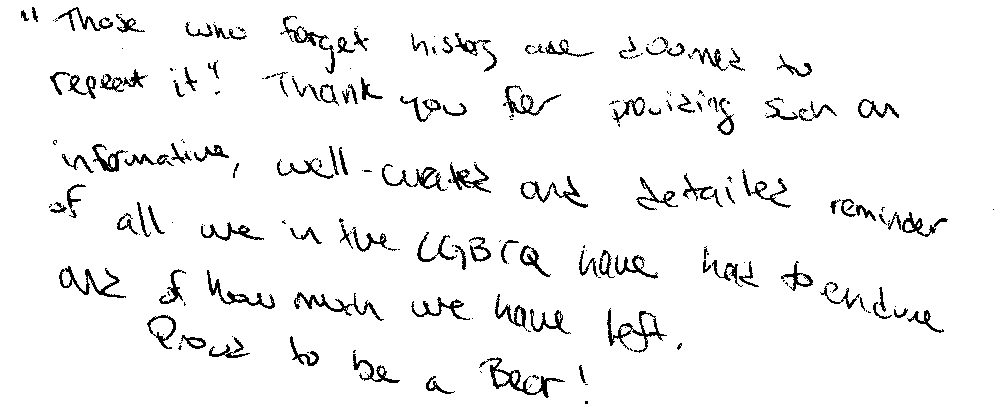 "Those who forget history are doomed to
repeat it"! Thank you for providing such an
informative, well-curated and detailed reminder
of all we in the LGBTQ have had to endure
and of how much we have left.
Proud to be a Bear!